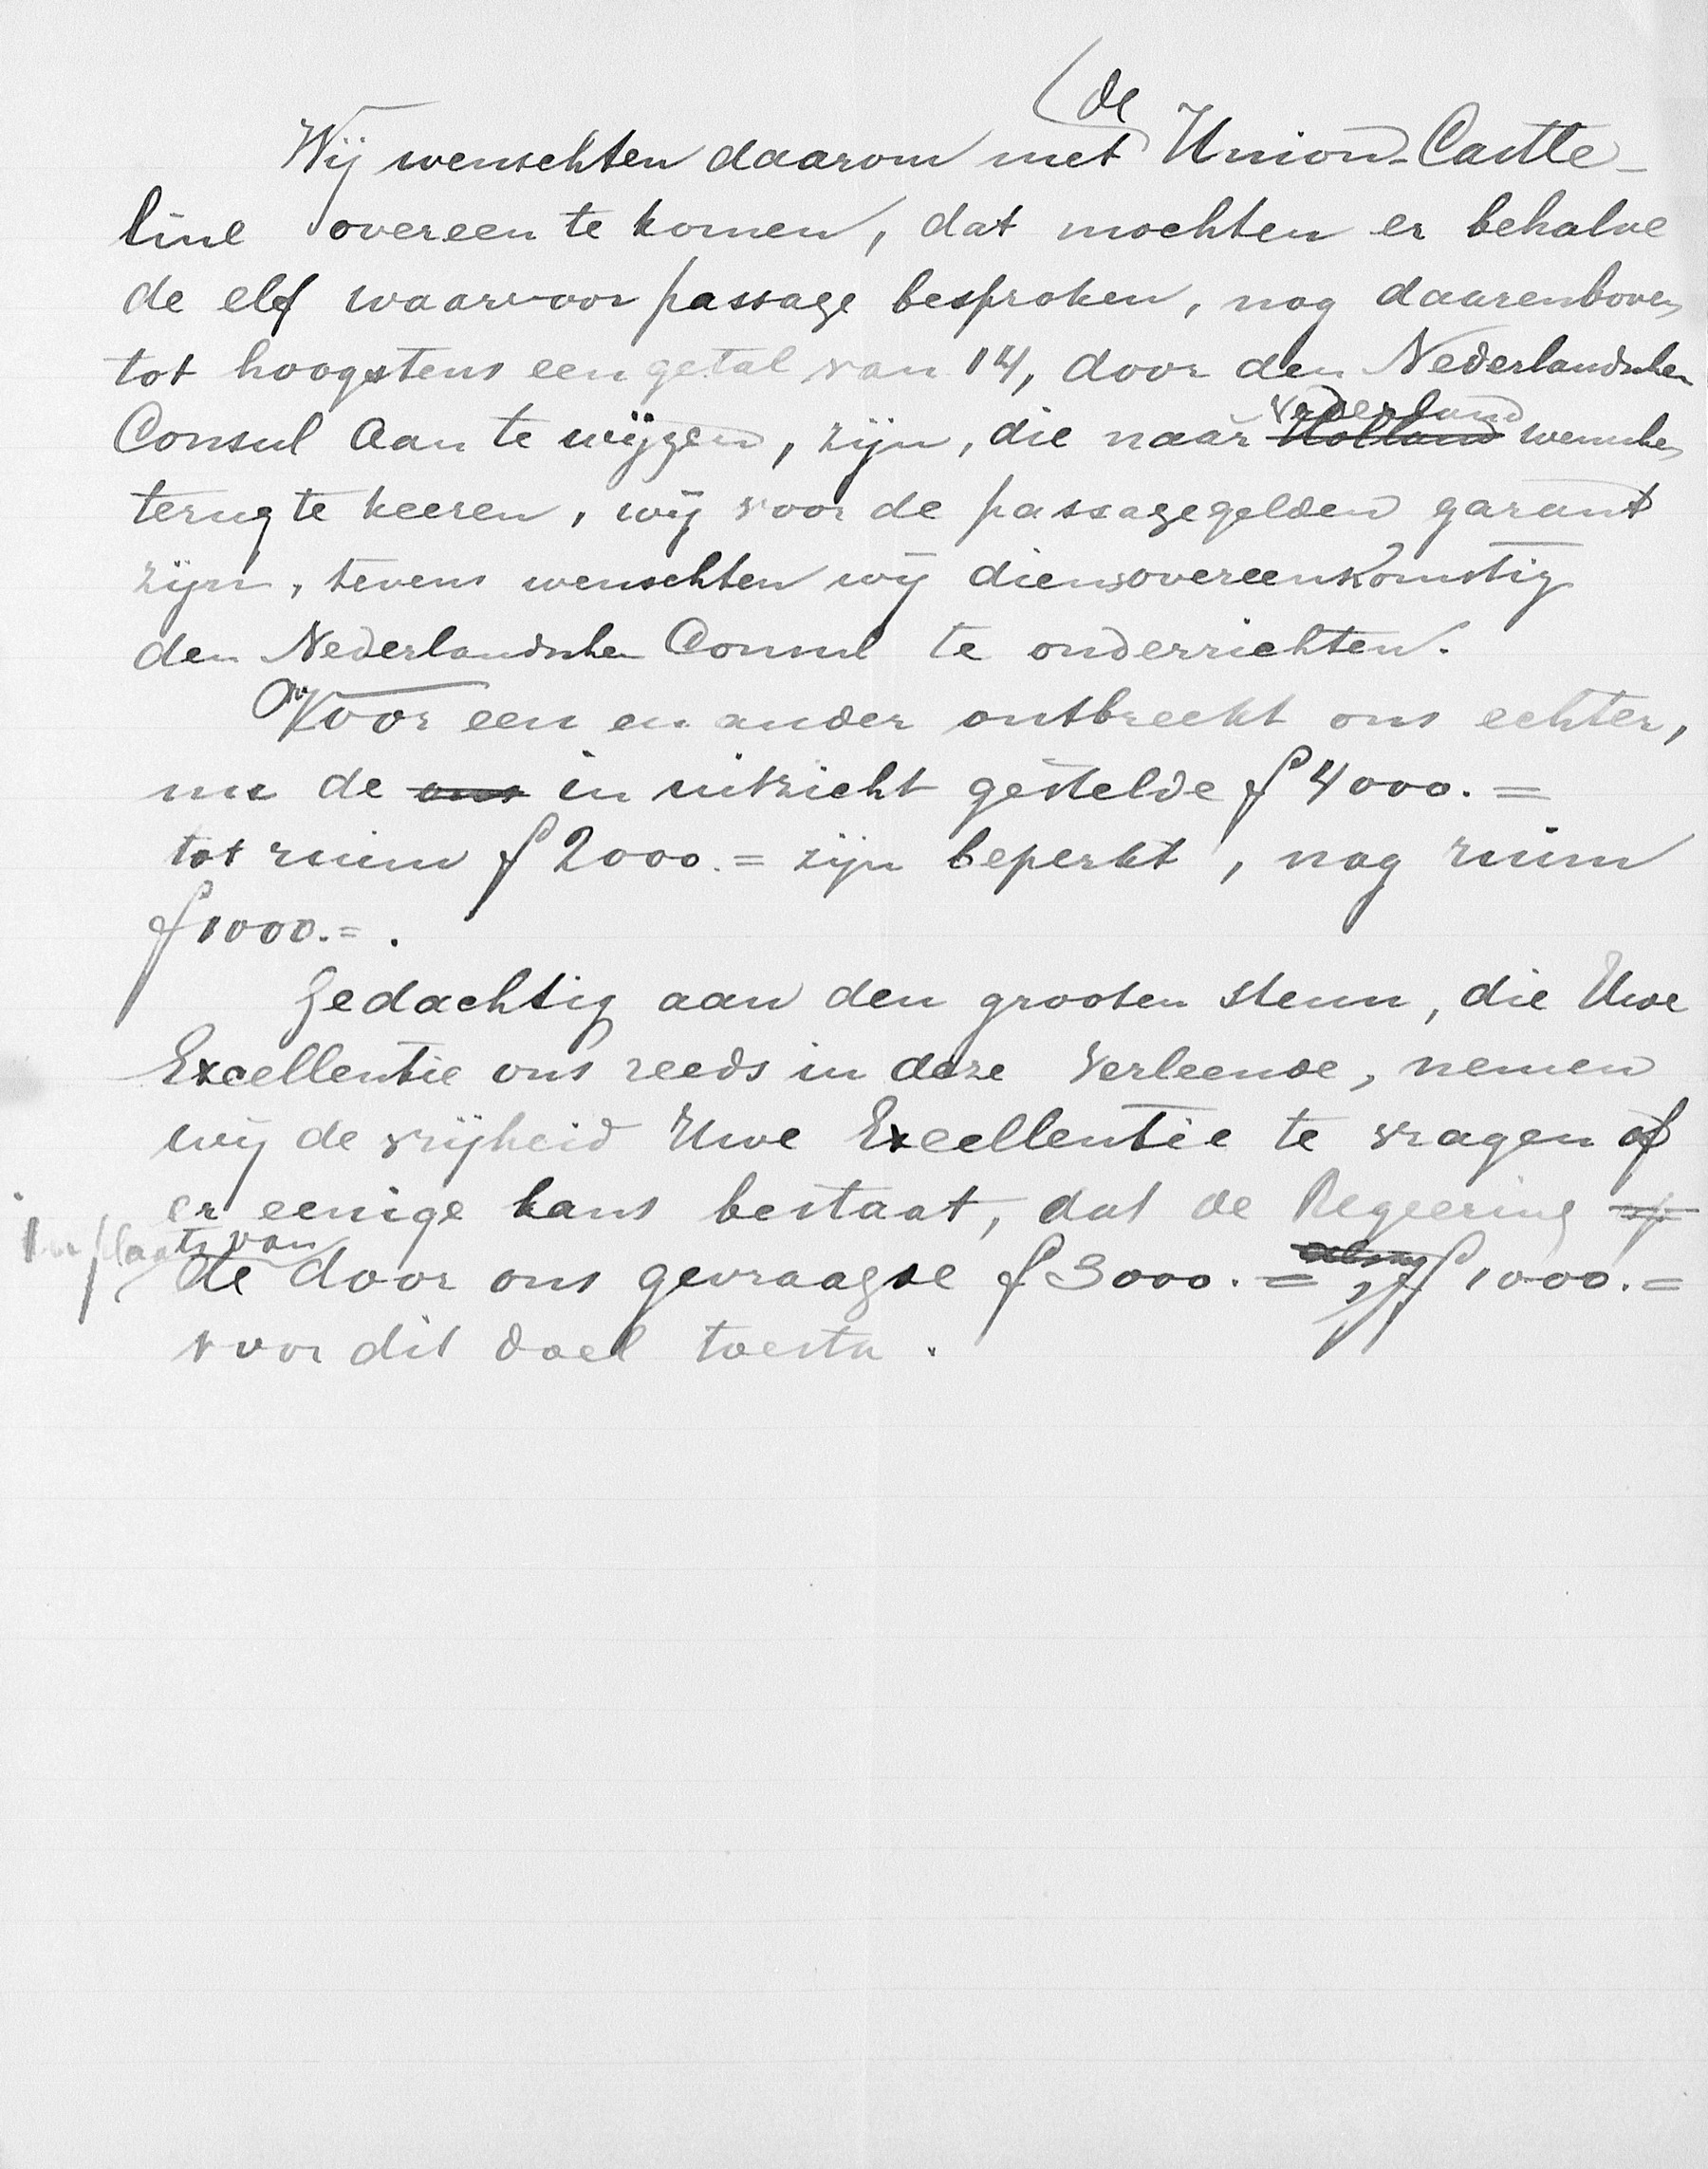 Wij wenschten daarom met de Union-Castle-
line overeen te komen, dat mochten er behalve
de elf waarvoor passage besproken, nog daarenboven
tot hoogstens een getal van 14, door den Nederlandschen
Consul aan te wijzen, zijn, die naar Holland vaderland wenschen
terug te keeren, wij voor de passagegelden garant
zijn, tevens wenschten wij dienovereenkomstig
den Nederlandschen Consul te onderrichten.
Voor een en ander ontbreekt ons echter,
nu de ons in uitzicht gestelde f 4000.=
tot ruim f 2000.= zijn beperkt, nog ruim
f 1000.=.
Gedachtig aan den grooten steun, die Uwe
Excellentie ons reeds in deze verleende, nemen
wij de vrijheid Uwe Excellentie te vragen of
er eenige kans bestaat, dat de Regeering op
in plaats van
de door ons gevraagde f 3000.= f 1000.=
voor dit doel toesta.